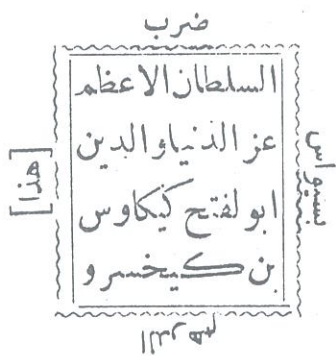 ضرب
السلطان الاعظم
عز الدنيا و الدين
ابو لفتح كيكاوس
بن كيخسرو
بسيواس
الدرهم
[هذا]